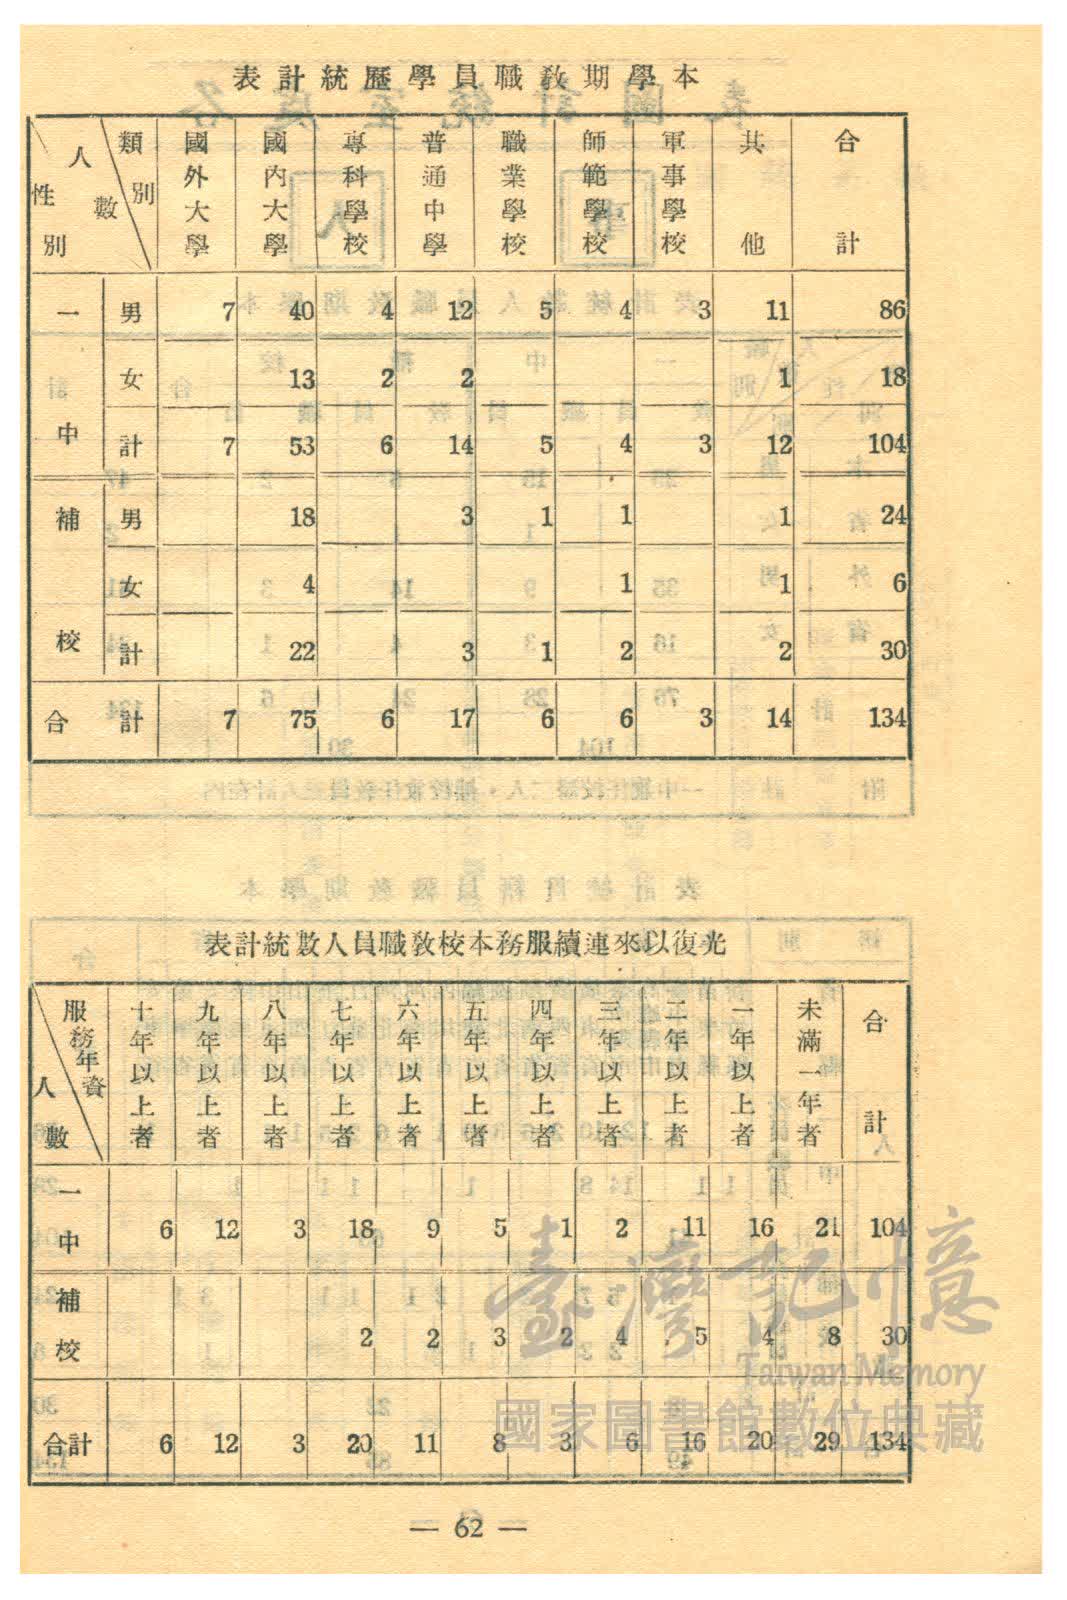 本學期教職員學歷統計表
類別 人數 性別 國外大學 國內大學 專科學校 普通中學 職業學校 師範學校 軍事學校 其他 合計
一中 男 7 40 4 12 5 4 3 11 86
女 13 2 2 1 18
計 7 53 6 14 5 4 3 12 104
補校 男 18 3 1 1 1 24
女 4 1 1 6
計 22 3 1 2 2 30
合計 7 75 6 17 6 6 3 14 134
光復以來連續服務本校教職員人數統計表
服務年資 人數 十年以上者 九年以上者 八年以上者 七年以上者 六年以上者 五年以上者 四年以上者 三年以上者 二年以上者 一年以上者 未滿一年者 合計
一中 6 12 3 18 9 5 1 2 11 16 21 104
補校 2 2 3 2 4 5 4 8 30
合計 6 12 3 20 11 8 3 6 16 20 29 134
臺灣記憶
Taiwan Memory
國家圖書館數位典藏
— 62 —